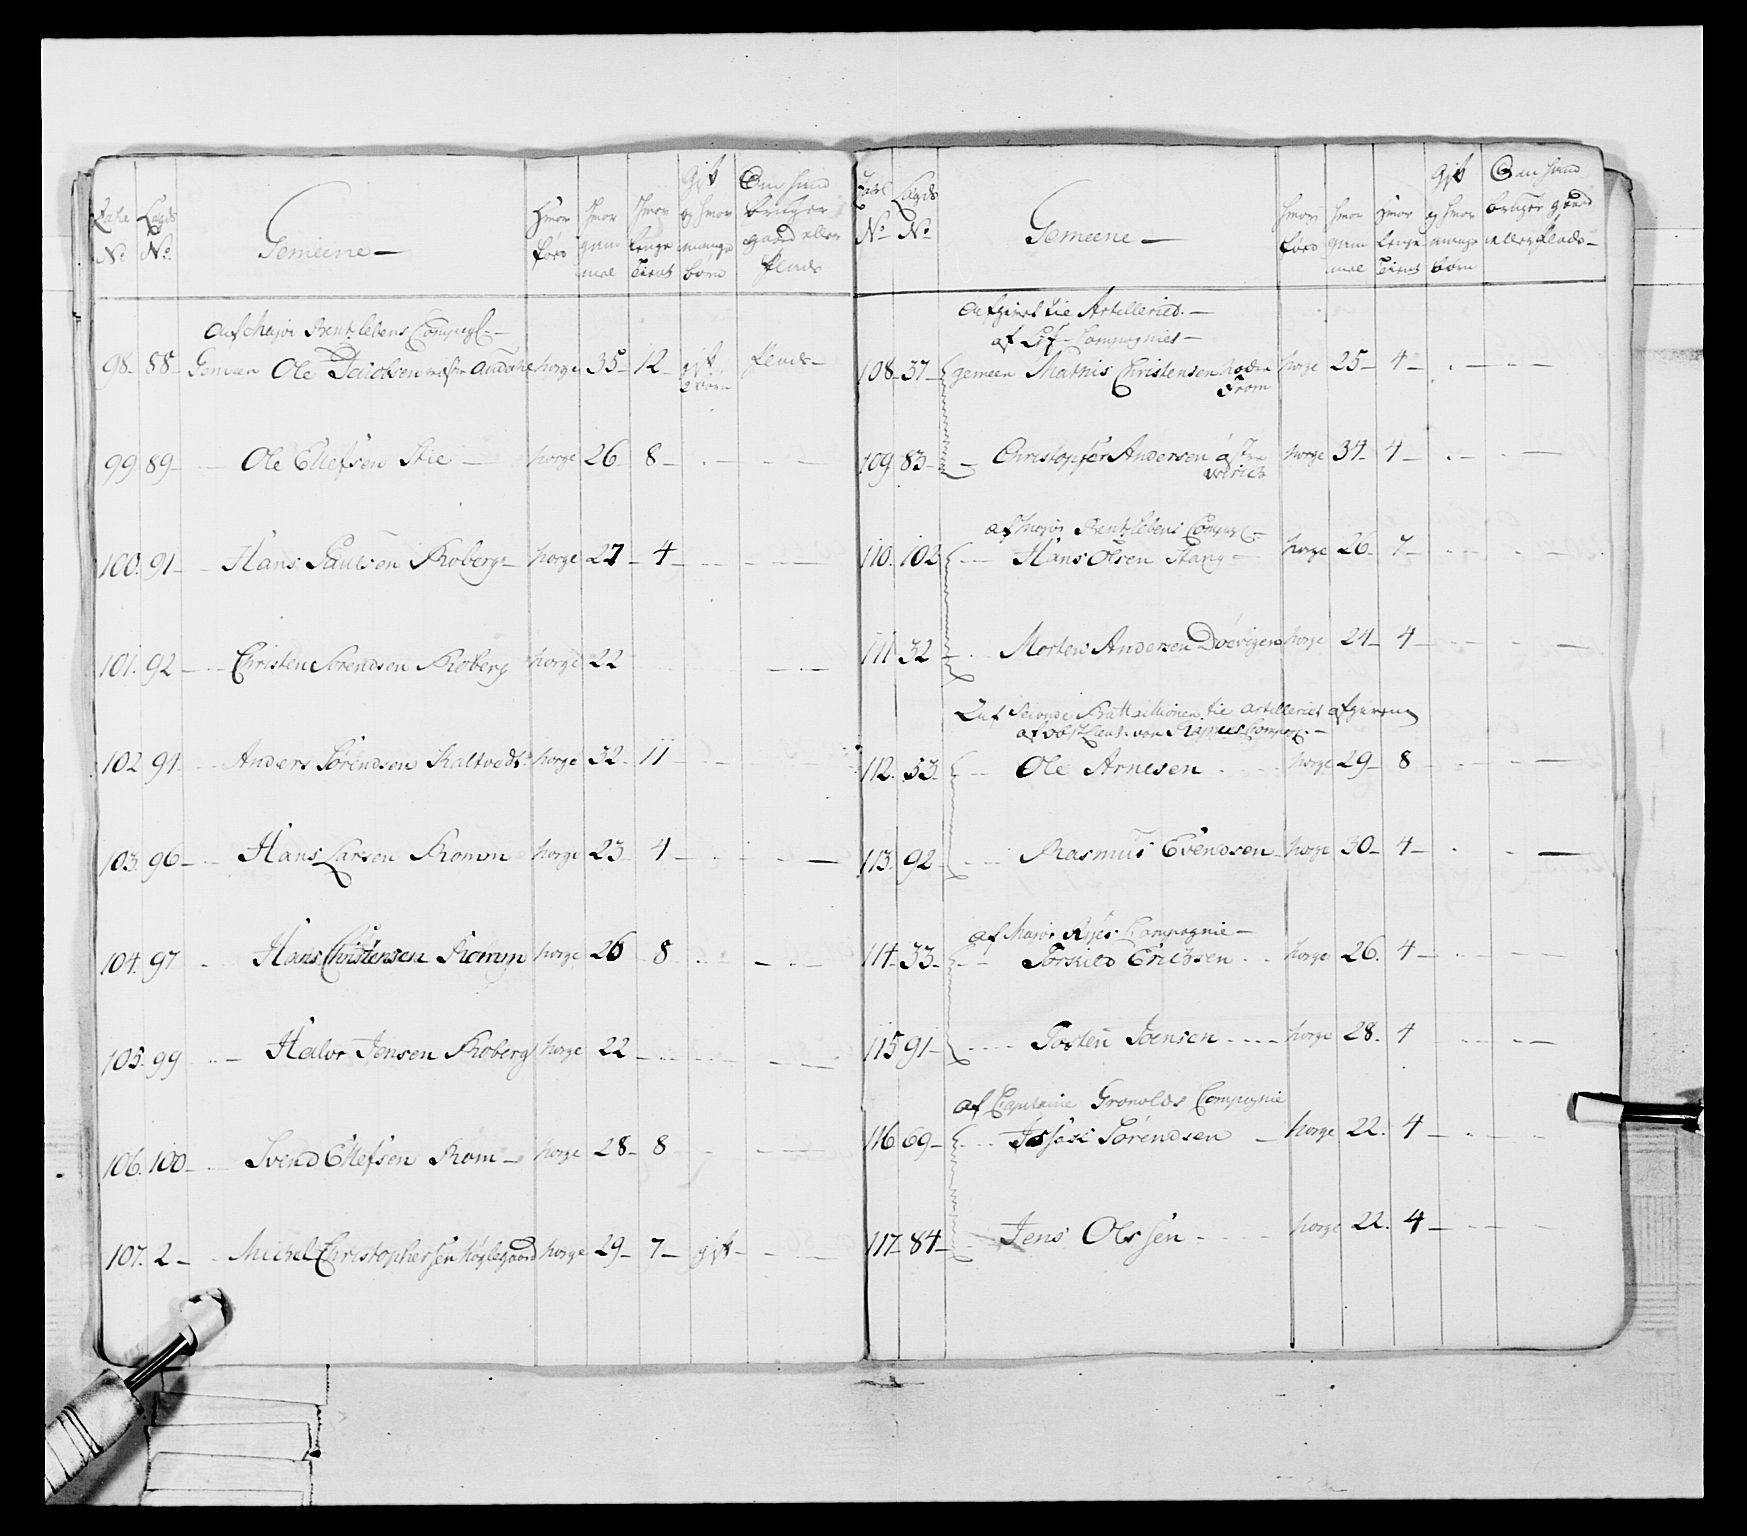 No Lægds No Gemeene — Hvor føed Hvor gammel Hvor lenge tient Gift og hvor mange børn Om hand bruger gaard eller Plads
Auf Major Rentzlebens Compagl —
98. 88 Gemeen Ole Jacobsen norge 35 12 gift 2 børn Plads
99. 89 — Ole Ellefsen Skie — norge 26 8
100. 91 — Hans Paulsen Roberg norge 27 4
101. 92 — Christen Sørendsen Roberg norge 22
102 94 — Anders Sørendsen Kaltvedt norge 32 11
103. 96 — Hans Larsen Romm norge 23 4
104. 97 — Hans Christensen Romm norge 26 8
105. 99 — Halvor Jensen Roberg norge 22
106. 100 — Svend Ellefsen Rom — norge 28 8
107. 2 — Michel Christophersen Høylegaard norge 29 7 gift
No Lægds No Gemeene — Hvor føed Hvor gammel Hvor lenge tient Gift og hvor mange børn Om hand bruger gaard eller Plads —
Afgivet til Artilleriet —
af Compagniet —
108 37 gemeen Mathis Christensen norge 25 4
From
109 83 — Christopher Andersen østre norge 34 4
af Major Rentzlebens Compagl —
110. 102 — Hans Olsen Stang norge 26 7
111 32 — Morten Andersen norge 24 4
Auf Seconde Battaillionen til Artilleriet afgivene
112. 53 — Ole Arnesen norge 29 8
113. 92 — Rasmus Evendsen norge 30 4
af Major Ryes Compagnie —
114 33 — Torkild Erichsen norge 26. 4
115 91 — Tosten Joensen norge 28. 4
af Capitaine Gronolds Compagnie
116 69 — Sørendsen norge 22. 4
117 84 — Jens Olssen norge 22. 4